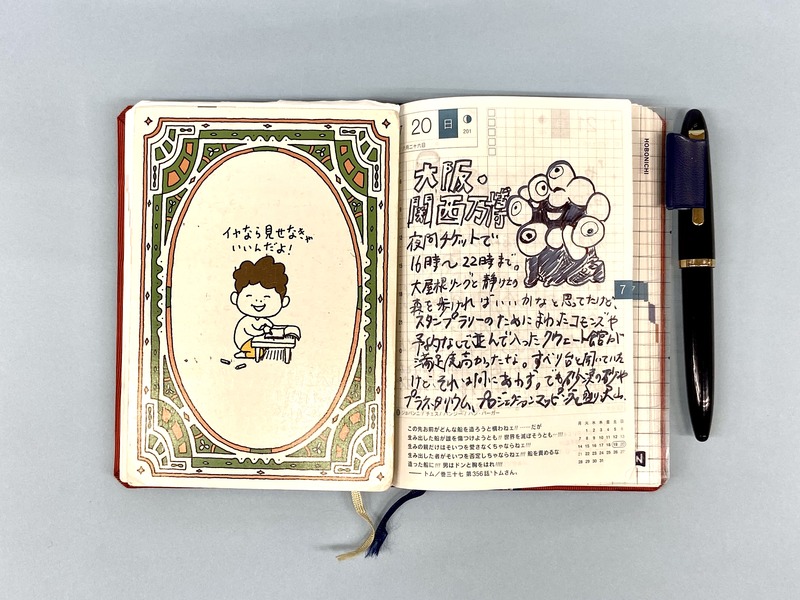 イヤなら見せなきゃ
いいんだよ!
20
日
201
HOBONICHI
大阪。
関西万博
夜間チケットで
16時〜22時まで。
大屋根リングと静けさの
森を歩ければいいかなと思ってたけど、
スタンプラリーのためにまわったコモンズや
予約なしで並んで入ったクウェート館が
満足度高かったなぁ。すべり台と聞いている
けどそれは間にあわず。でも砂漠の砂や
プラネタリウム、プロジェクションマッピング
7
この先お前がどんな船を造ろうと構わねェ!!……だが
生み出した船が誰を傷つけようとも!! 世界を滅ぼそうとも…!!!
生みの親だけはそいつを愛さなくちゃならねェ!!!
生み出した者がそいつを否定しちゃならねェ!!! 船を責めるな
造った船に!!! 男はドンと胸をはれ!!!!
—— トム/巻三十七 第356話“トムさん”
月 火 水 木 金 土 日
1 2 3 4 5 6
7 8 9 10 11 12 13
14 15 16 17 18 19 20
21 22 23 24 25 26 27
28 29 30 31